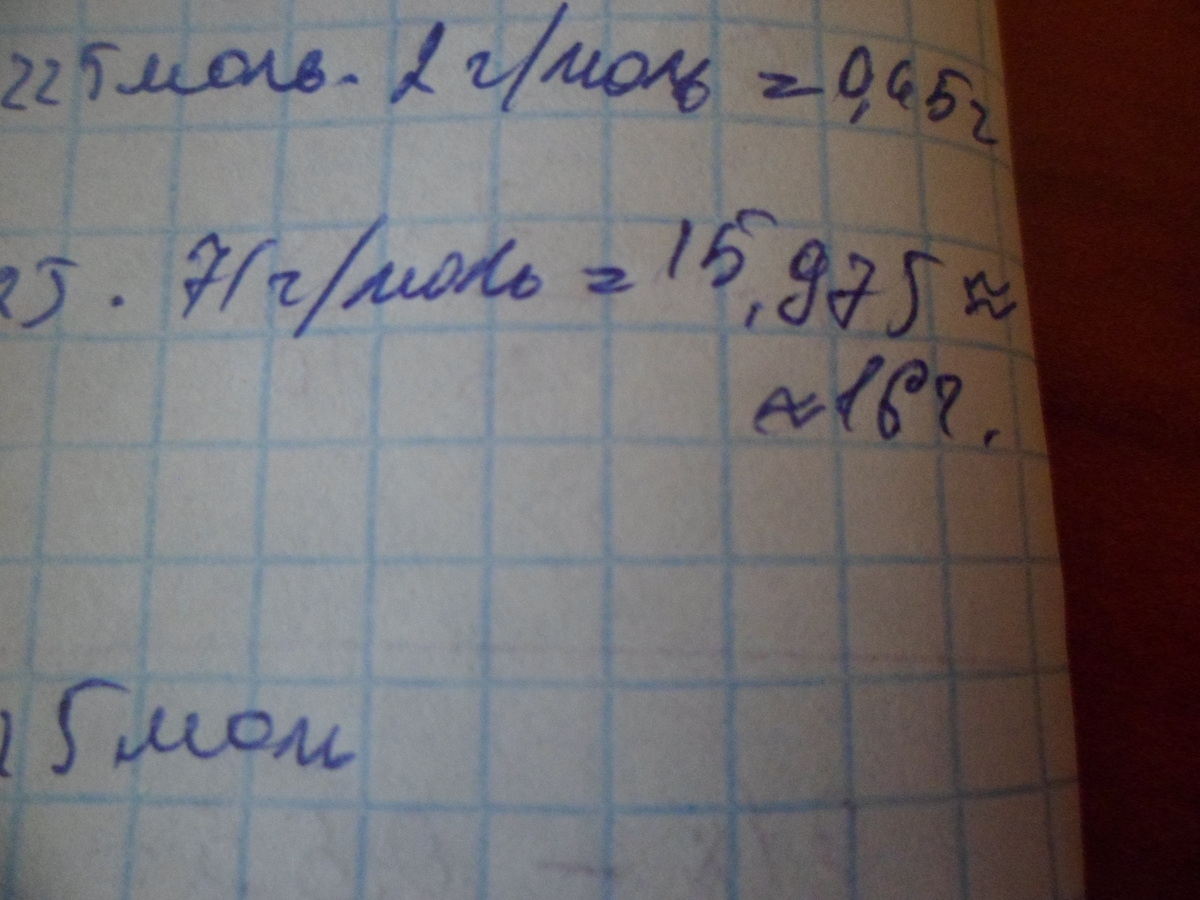 225моль. 2 г/моль = 0,45г
25 . 71 г/моль = 15,975 ≈
≈ 16г.
5 моль